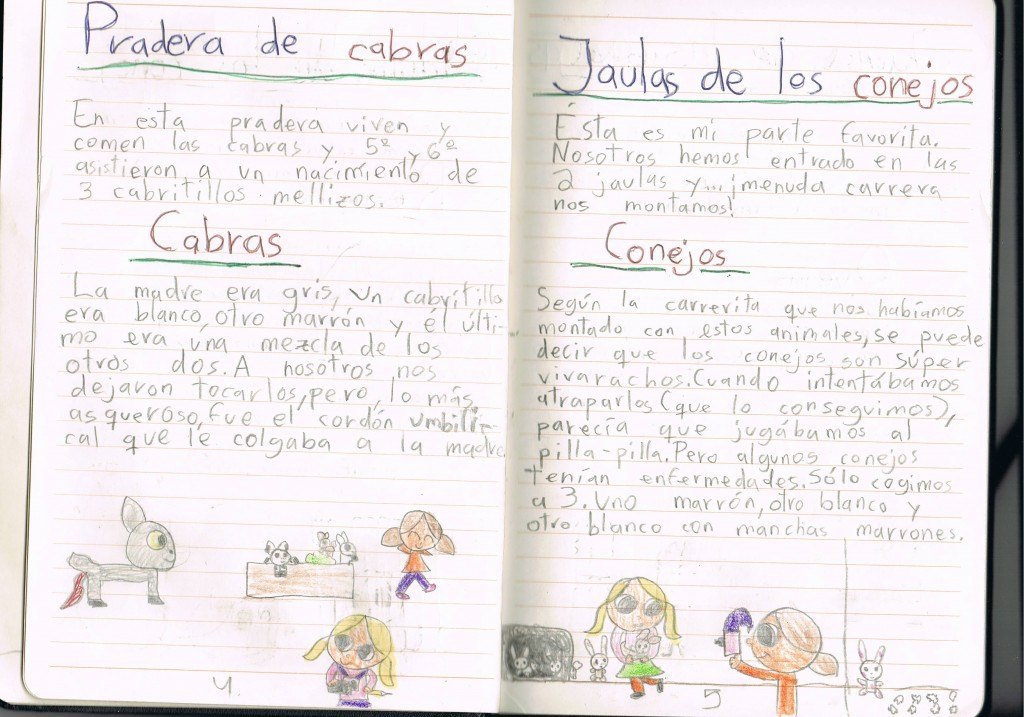 Pradera de cabras
En esta pradera viven y
comen las cabras y 5º y 6º
asistieron a un nacimiento de
3 cabritillos mellizos.
Cabras
La madre era gris, un cabritillo
era blanco, otro marrón y él últi-
mo era una mezcla de los
otros dos. A nosotros nos
dejaron tocarlos, pero, lo más
asqueroso, fue el cordón umbili-
cal que le colgaba a la madre.
4
Jaulas de los conejos
Ésta es mi parte favorita.
Nosotros hemos entrado en las
2 jaulas y... ¡menuda carrera
nos montamos!
Conejos
Según la carrerita que nos habíamos
montado con estos animales, se puede
decir que los conejos son súper
vivarachos. Cuando intentábamos
atraparlos (que lo conseguimos),
parecía que jugábamos al
pilla-pilla. Pero algunos conejos
tenían enfermedades. Sólo cogimos
a 3. Uno marrón, otro blanco y
otro blanco con manchas marrones.
5